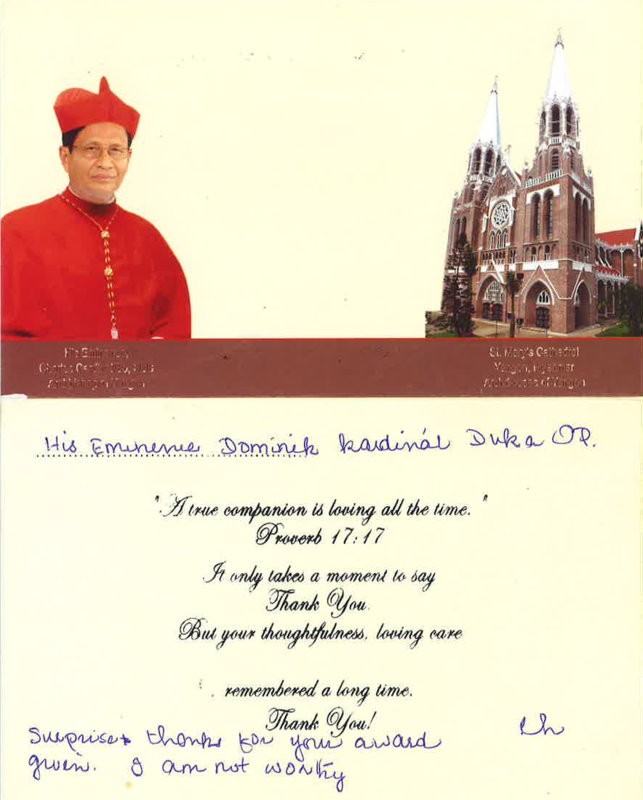 His Eminence
St. Mary's Cathedral
Yangon, Myanmar
Archdiocese of Yangon
His Eminence Dominik kardinál Duka OP.
"A true companion is loving all the time."
Proverb 17:17
It only takes a moment to say
Thank You
But your thoughtfulness, loving care
remembered a long time.
Thank You!
Surprise & thanks for your award
given. I am not worthy